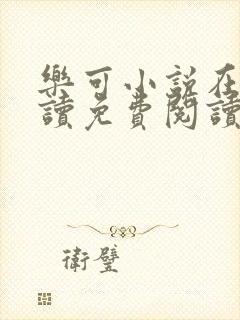 樂可小說在
讀免費閱讀
衛璧